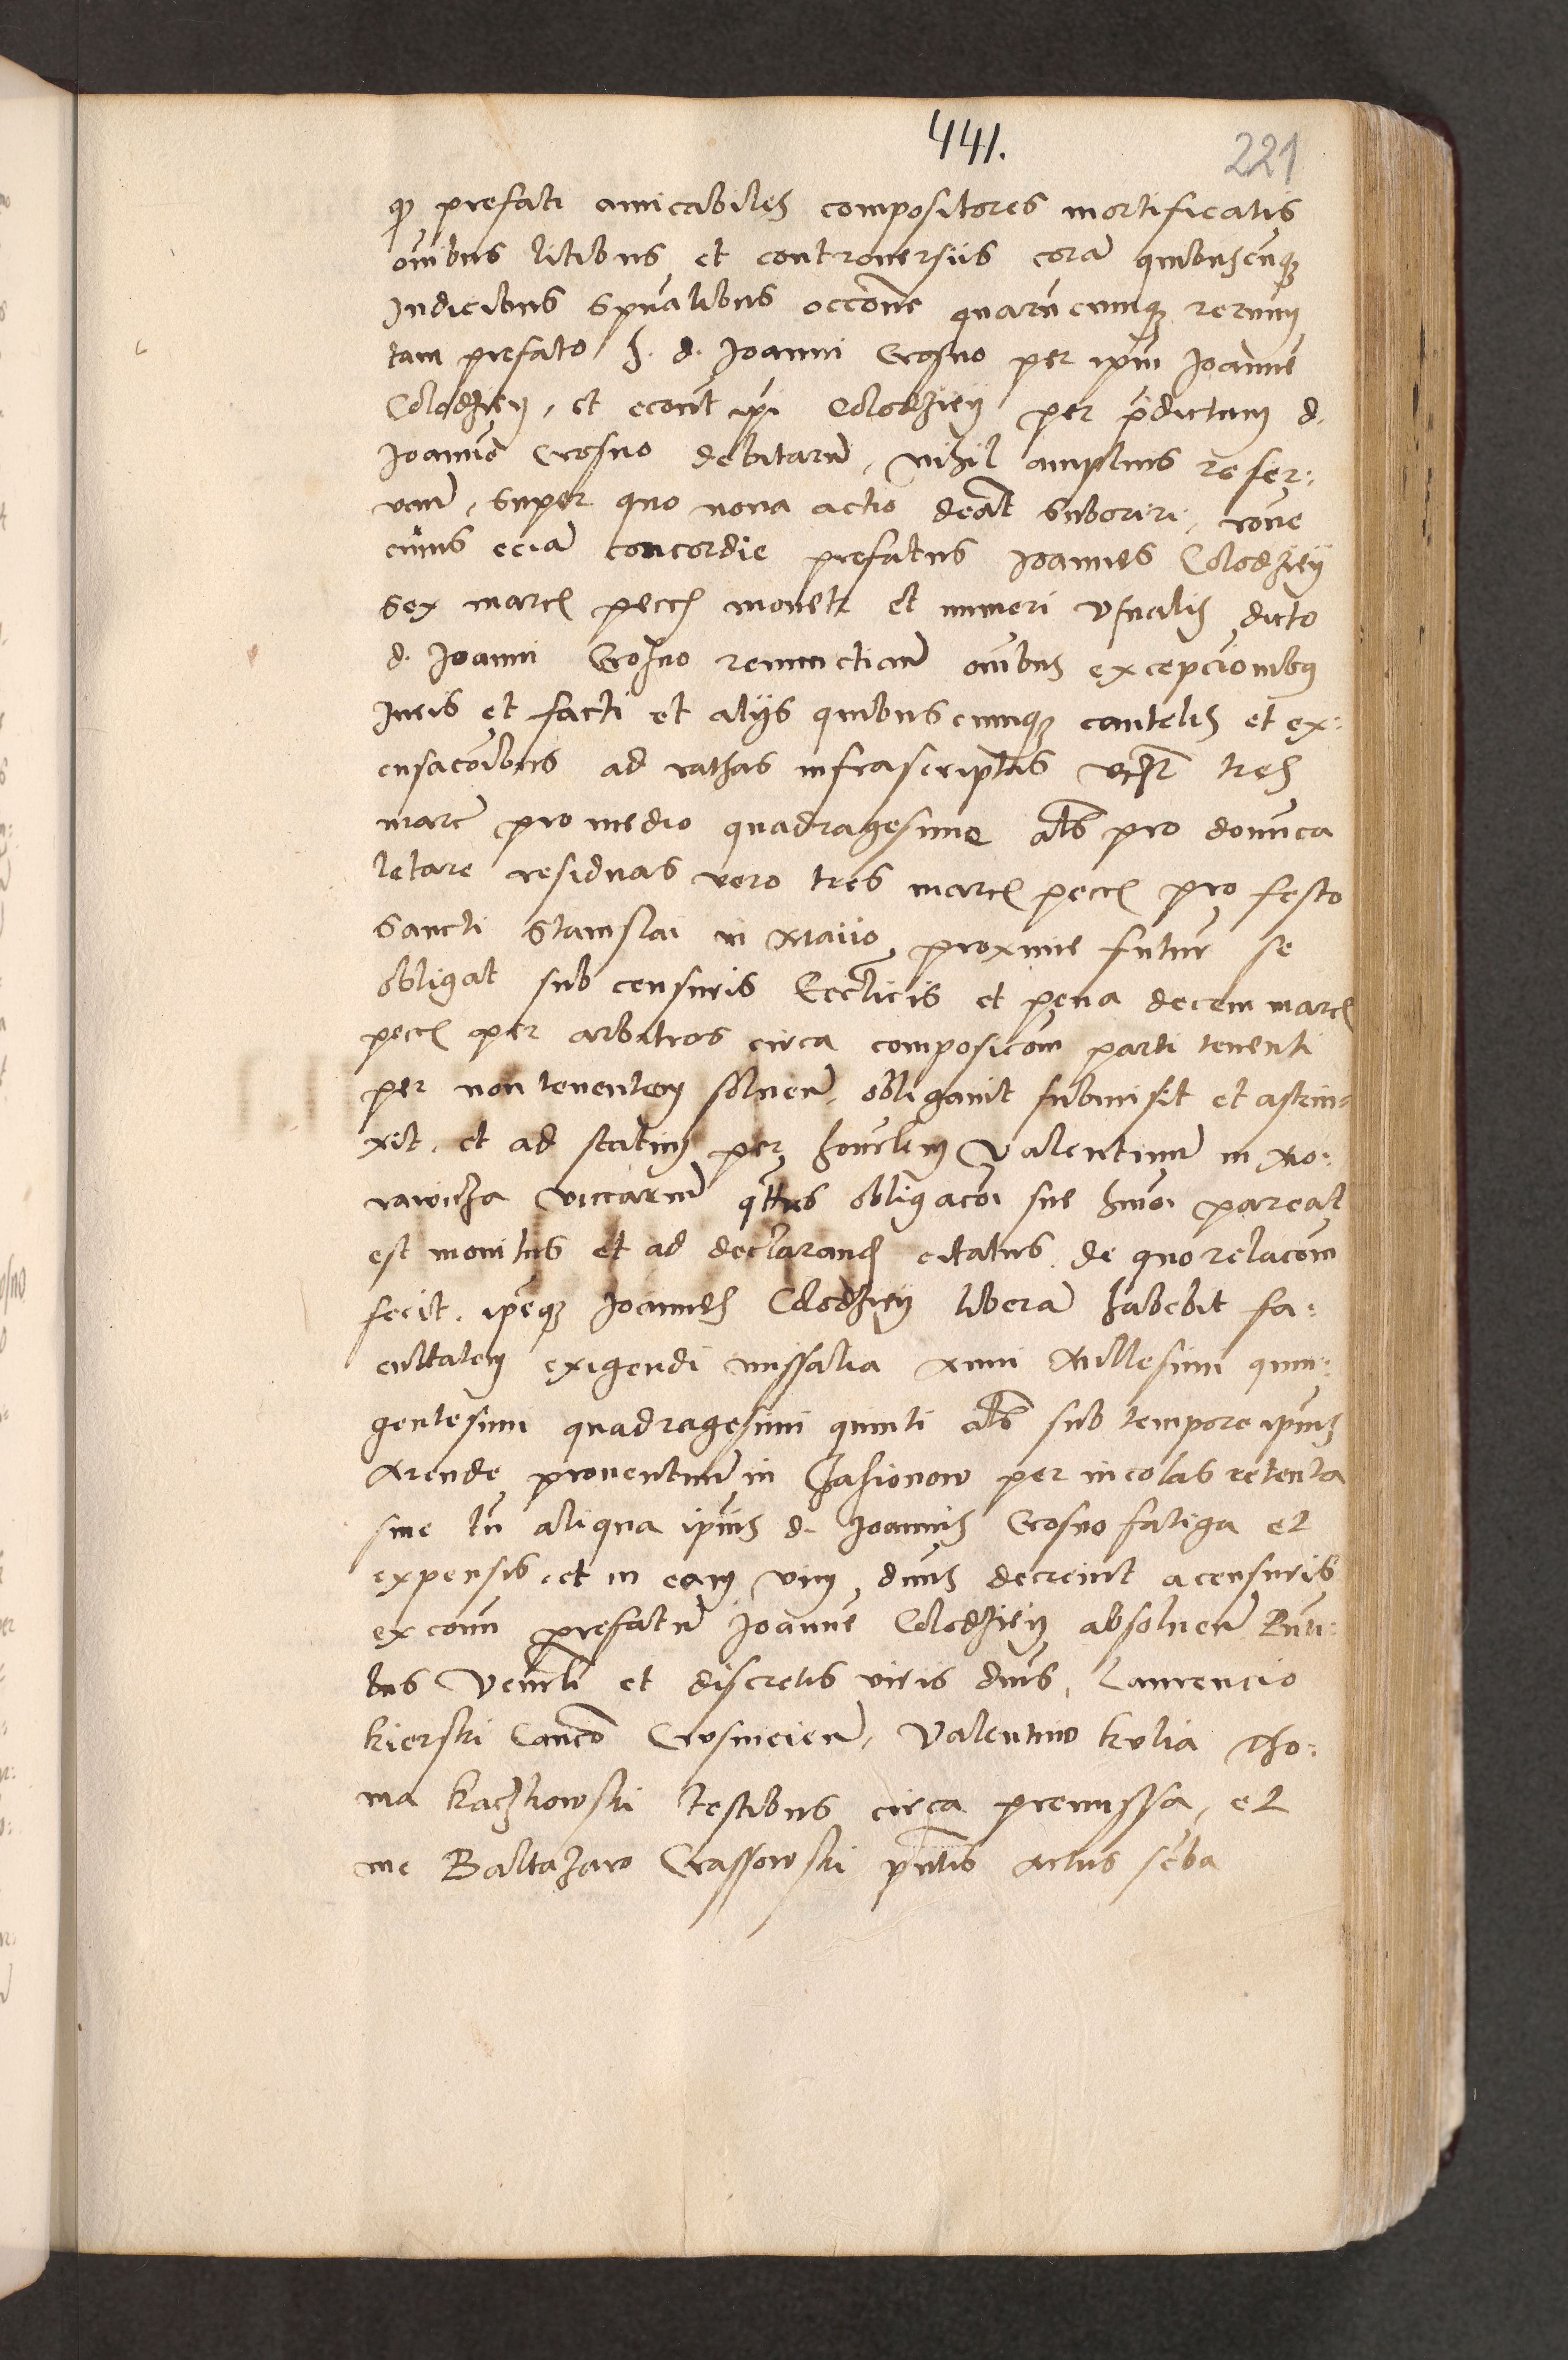 441.
221
qꝫ prefati amicabiles compositores mortificatis
oĩbus litibus et controversiis corã quibuscũqꝫ
Iudicibus spũalibus occõne quarũcumqꝫ rerum
tam prefato h. d. Joanni Crosno per ipm̃ Joannẽ
Colodzieÿ, et econt ipi Colodzieÿ per p̃dictum d.
Joannẽ Crosno debitarũ, nihil amplius reser:
van̄, super quo nova actio deat suboriri, rõne
cuius eciã concordie prefatus Joannes Colodzieÿ
sex marc̃ pecc̃ monete et numeri usualis dicto
d. Joanni Crosno renunctian̄ oĩbus excepcionibꝫ
Iuris et facti et alÿs quibuscumqꝫ cautelis et ex:
cusacõibus ad rathas infrascriptas vcꝫ tres
marc̃ pro medio quadragesime als pro domĩca
letare residuas vero tres marc̃ pecc̃ pro festo
Sancti Stanislai in Maiio proxime futur̃ se
obligat sub censuris Eccl̃ticis et pena decem marc̃
pecc̃ per arbitros circa composicõm parti tenenti
per non tenentem solven̄, obligavit submisit et astrin:
xit, et ad statim per honorlem Valentinũ in Mo:
rawicza viccariũ q̃ttus obligacõi sue hmõi pareat
est monitus et ad declarand citatus de quo relacõm
fecit. ipeqꝫ Joannes Colodzieÿ liberã habebit fa:
cultatem exigendi missalia Anni Millesimi quin:
gentesimi quadragesimi quinti als sub tempore ipius
Arende proventuũ in Jasionow per incolas retenta
sine tñ aliqua ipius d. Joannis Crosno fatiga et
expensis, et in eam vim dnus decrevit a censuris
excõm prefatũ Joannẽ Colodzieÿ absolven̄ Pnti:
bus Venrli et discretis viris dnis, Laurencio
Kierski Canco Crusvicien̄, Valentino Kulia Tho:
ma Kaczkowski testibus circa premissa, et
me Baltazaro Crassowski pñtis Actus scriba